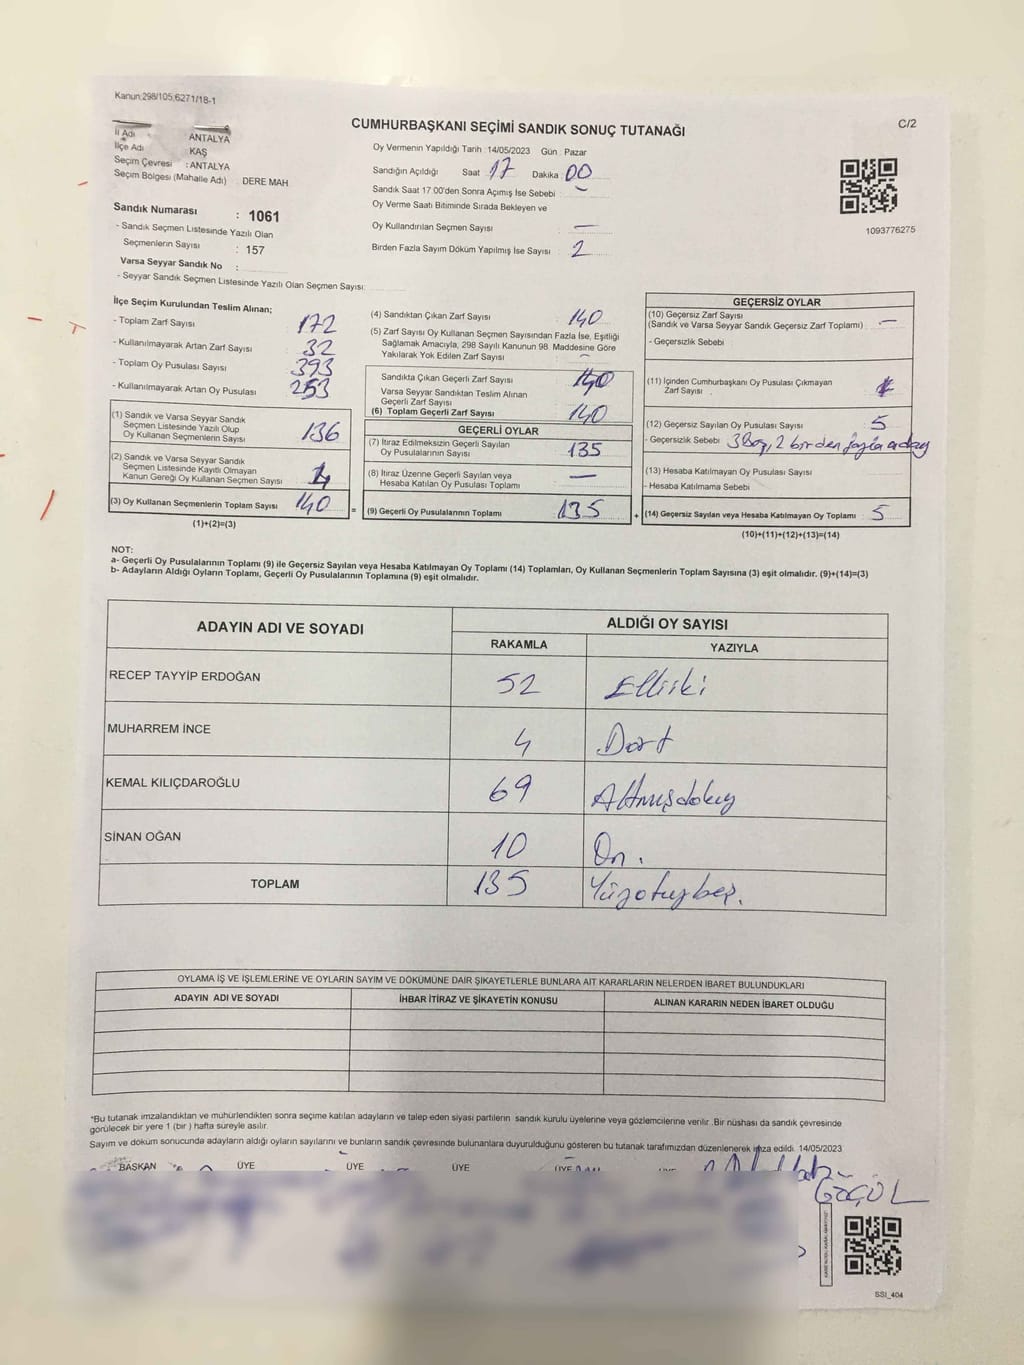 Kanun:298/105,6271/18-1
C/2
CUMHURBAŞKANI SEÇİMİ SANDIK SONUÇ TUTANAĞI
İl Adı : ANTALYA
İlçe Adı KAŞ
Seçim Çevresi : ANTALYA
Seçim Bölgesi (Mahalle Adı) DERE MAH
Sandık Numarası : 1061
- Sandık Seçmen Listesinde Yazılı Olan
Seçmenlerin Sayısı : 157
Varsa Seyyar Sandık No :
- Seyyar Sandık Seçmen Listesinde Yazılı Olan Seçmen Sayısı:
Oy Vermenin Yapıldığı Tarih :14/05/2023 Gün : Pazar
Sandığın Açıldığı Saat : 17 Dakika : 00
Sandık Saat 17.00'den Sonra Açımış İse Sebebi : -
Oy Verme Saati Bitiminde Sırada Bekleyen ve
Oy Kullandırılan Seçmen Sayısı : —
Birden Fazla Sayım Döküm Yapılmış İse Sayısı : 2
1093776275
İlçe Seçim Kurulundan Teslim Alınan;
- Toplam Zarf Sayısı 172
- Kullanılmayarak Artan Zarf Sayısı 32
- Toplam Oy Pusulası Sayısı 393
- Kullanılmayarak Artan Oy Pusulası 253
(1) Sandık ve Varsa Seyyar Sandık
Seçmen Listesinde Yazılı Olup
Oy Kullanan Seçmenlerin Sayısı : 136
(2) Sandık ve Varsa Seyyar Sandık
Seçmen Listesinde Kayıtlı Olmayan
Kanun Gereği Oy Kullanan Seçmen Sayısı : 4
(3) Oy Kullanan Seçmenlerin Toplam Sayısı : 140 =
(1)+(2)=(3)
(4) Sandıktan Çıkan Zarf Sayısı : 140
(5) Zarf Sayısı Oy Kullanan Seçmen Sayısından Fazla İse, Eşitliği
Sağlamak Amacıyla, 298 Sayılı Kanunun 98. Maddesine Göre
Yakılarak Yok Edilen Zarf Sayısı : -
Sandıkta Çıkan Geçerli Zarf Sayısı : 140
Varsa Seyyar Sandıktan Teslim Alınan
Geçerli Zarf Sayısı :
(6) Toplam Geçerli Zarf Sayısı : 140
GEÇERLİ OYLAR
(7) İtiraz Edilmeksizin Geçerli Sayılan
Oy Pusulalarının Sayısı : 135
(8) İtiraz Üzerine Geçerli Sayılan veya
Hesaba Katılan Oy Pusulası Toplamı : —
(9) Geçerli Oy Pusulalarının Toplamı : 135 +
GEÇERSİZ OYLAR
(10) Geçersiz Zarf Sayısı
(Sandık ve Varsa Seyyar Sandık Geçersiz Zarf Toplamı) : —
- Geçersizlik Sebebi
(11) İçinden Cumhurbaşkanı Oy Pusulası Çıkmayan
Zarf Sayısı .
(12) Geçersiz Sayılan Oy Pusulası Sayısı : 5
- Geçersizlik Sebebi : 3 Boş, 2 birden fazla aday
(13) Hesaba Katılmayan Oy Pusulası Sayısı :
- Hesaba Katılmama Sebebi :
(14) Geçersiz Sayılan veya Hesaba Katılmayan Oy Toplamı : 5
(10)+(11)+(12)+(13)=(14)
NOT:
a- Geçerli Oy Pusulalarının Toplamı (9) ile Geçersiz Sayılan veya Hesaba Katılmayan Oy Toplamı (14) Toplamları, Oy Kullanan Seçmenlerin Toplam Sayısına (3) eşit olmalıdır. (9)+(14)=(3)
b- Adayların Aldığı Oyların Toplamı, Geçerli Oy Pusulalarının Toplamına (9) eşit olmalıdır.
ADAYIN ADI VE SOYADI ALDIĞI OY SAYISI
RAKAMLA YAZIYLA
RECEP TAYYİP ERDOĞAN 52 Elliiki
MUHARREM İNCE 4 Dört
KEMAL KILIÇDAROĞLU 69 Altmışdokuz
SİNAN OĞAN 10 On.
TOPLAM 135 Yüzotuzbeş.
OYLAMA İŞ VE İŞLEMLERİNE VE OYLARIN SAYIM VE DÖKÜMÜNE DAİR ŞİKAYETLERLE BUNLARA AİT KARARLARIN NELERDEN İBARET BULUNDUKLARI
ADAYIN ADI VE SOYADI İHBAR İTİRAZ VE ŞİKAYETİN KONUSU ALINAN KARARIN NEDEN İBARET OLDUĞU
*Bu tutanak imzalandıktan ve mühürlendikten sonra seçime katılan adayların ve talep eden siyasi partilerin sandık kurulu üyelerine veya gözlemcilerine verilir. Bir nüshası da sandık çevresinde
görülecek bir yere 1 (bir ) hafta süreyle asılır.
Sayım ve döküm sonucunda adayların aldığı oyların sayılarını ve bunların sandık çevresinde bulunanlara duyurulduğunu gösteren bu tutanak tarafımızdan düzenlenerek imza edildi. 14/05/2023
BAŞKAN ÜYE ÜYE ÜYE ÜYE
SSI_404